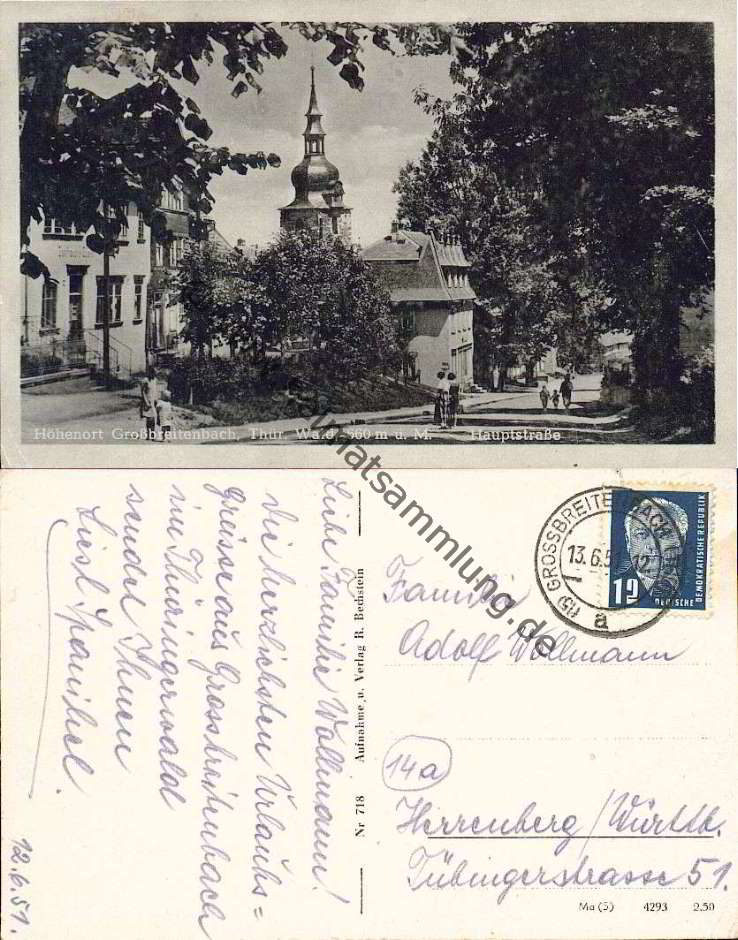 Höhenort Großbreitenbach, Thür. Wald, 660 m ü. M. Hauptstraße
heimatsammlung.de
Liebe Familie Wollmann!
Die herzlichsten Urlaubs=
grüsse aus Grossbreitenbach
im Thüringerwald
sendet Ihnen
Liesl
12.6.51.
Nr 718 Aufnahme u. Verlag R. Bechstein
GROSSBREITENBACH
(15)
13.6.5
a
12
DEUTSCHE
DEMOKRATISCHE REPUBLIK
Familie
Adolf Wollmann
14a
Herrenberg/Württb.
Tübingerstrasse 51.
Ma (5) 4293 2.50